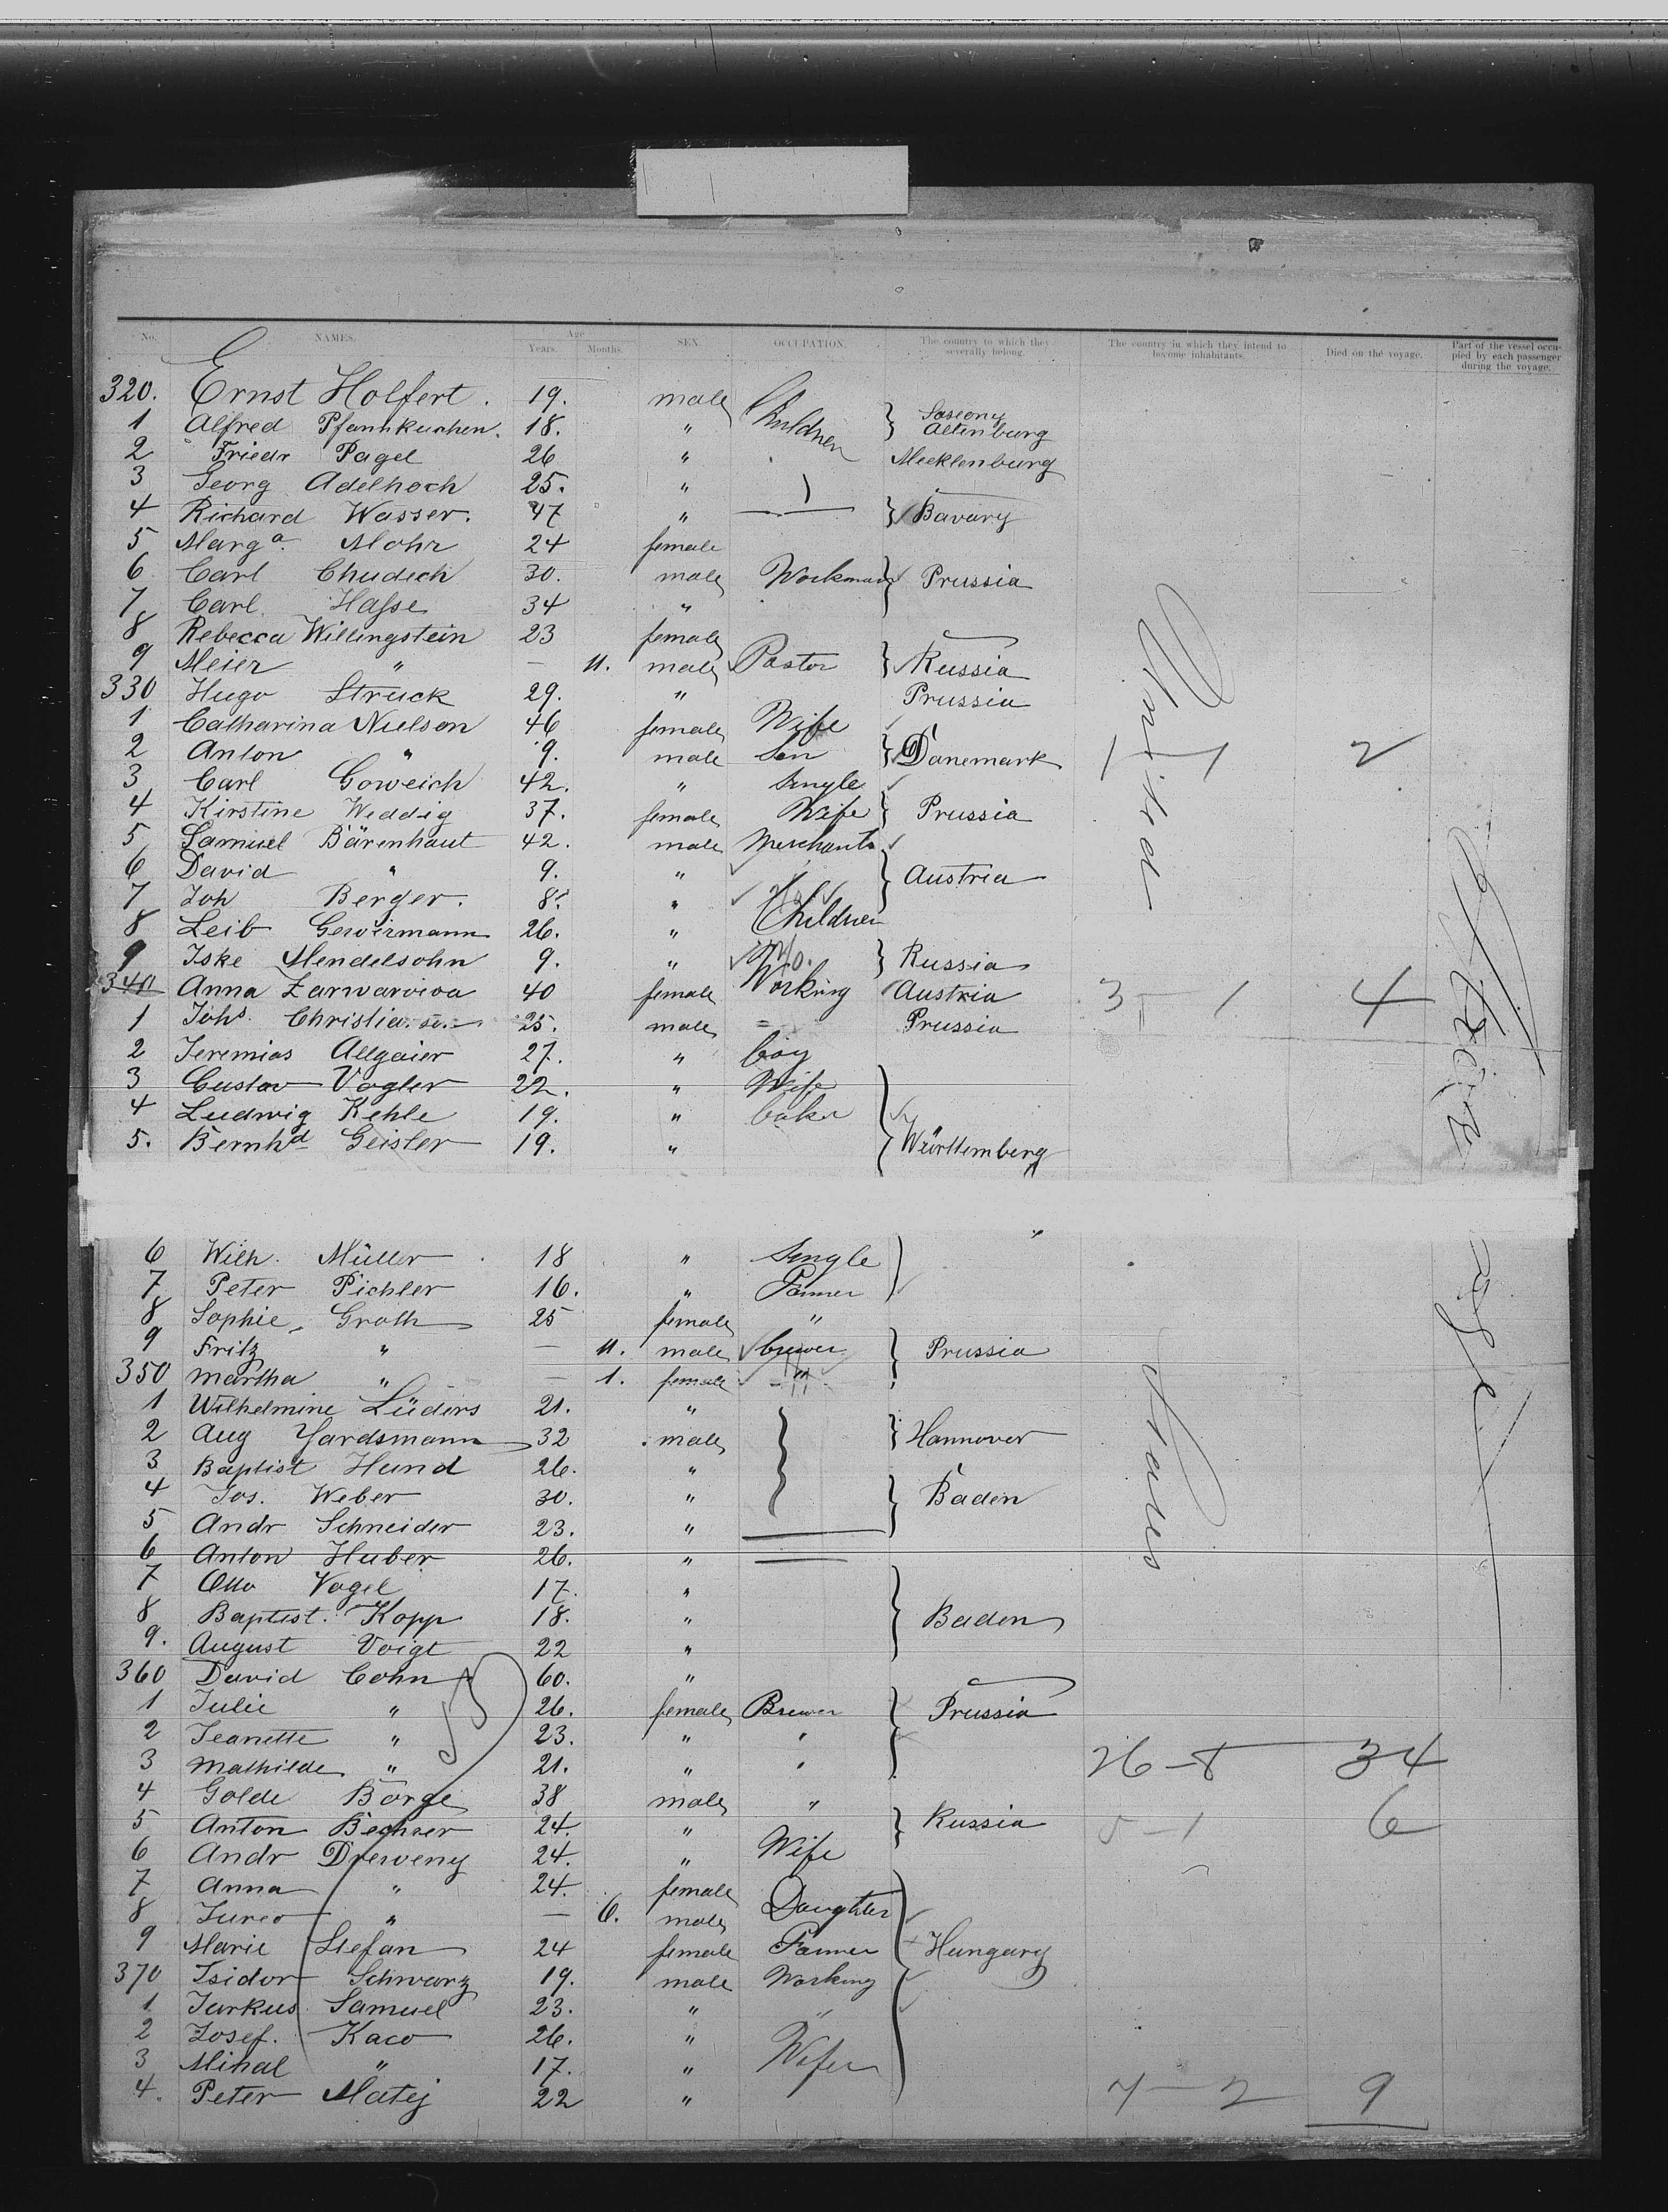 No. NAMES. Age Years. Months. SEX. OCCUPATION. The country to which they severally belong. The country in which they intend to become inhabitants. Died on the voyage. Part of the vessel occupied by each passenger during the voyage.
320. Ernst Holfert. 19. male Children
1 Alfred Pfannkuchen. 18. " Altenburg
2 Friedr Pagel 26 " Mecklenburg
3 Georg Adelhoch 25. "
4 Richard Wasser. 47 " Bavary
5 Marga. Mohr 24 female
6 Carl Chudech 30. male Workman Prussia
7 Carl Hasse 34 "
8 Rebecca Willingstein 23 female
9 Meier " — 11. male Pastor Russia
330 Hugo Struck 29. " Prussia
1 Catharina Nielson 46 female Wife
2 Anton " 9. male Son Danemark 1 1 2
3 Carl Goweich 42. " Single
4 Kirstine Weddig 37. female Wife Prussia
5 Samuel Bärenhaut 42. male Merchants
6 David " 9. " Austria
7 Joh Berger. 8. "
8 Leib Gewirmann 26. " Children
9 Iske Mendelsohn 9. " Russia
340 Anna Zarwarviva 40 female Working Austria 3 — 1 4
1 Johs. 25. male = Prussia
2 Jeremias Allgaier 27. " boy
3 Gustav Vogler 22. " Wife
4 Ludwig Kehle 19. " baker
5. Bernhd Geisler 19. " Württemberg
6 Wilh. Müller 18 " Single
7 Peter Pichler 16. " Farmer
8 Sophie Groth 25 female "
9 Fritz " — 11. male brewer Prussia
350 Martha " — 1. female "
1 Wilhelmine Lüders 21. "
2 Aug Yardsmann 32 male Hannover
3 Baptist Hund 26. "
4 Jos. Weber 30. " Baden
5 Andr Schneider 23. "
6 Anton Huber 26. "
7 Otto Vogel 17. "
8 Baptist. Kopp 18. " Baden
9. August Voigt 22 "
360 David Cohn 60. "
1 Julie " 26. female Brewer Prussia
2 Jeanette " 23. " "
3 Mathilde " 21. " " 26 — 8 34
4 Golde Borge 38 male "
5 Anton Bechser 24. " Russia 5 — 1 6
6 Andr Dreweny 24. " Wife
7 Anna " 24. female
8 Jureo " — 6. male Daughter
9 Marie Stefan 24 female Farmer Hungary
370 Isidor Schwarz 19. male Working
1 Jurkus Samuel 23. " "
2 Josef. Kaco 26. "
3 Mihal " 17. "
4. Peter Matej 22 " 7 — 2 9
United
States